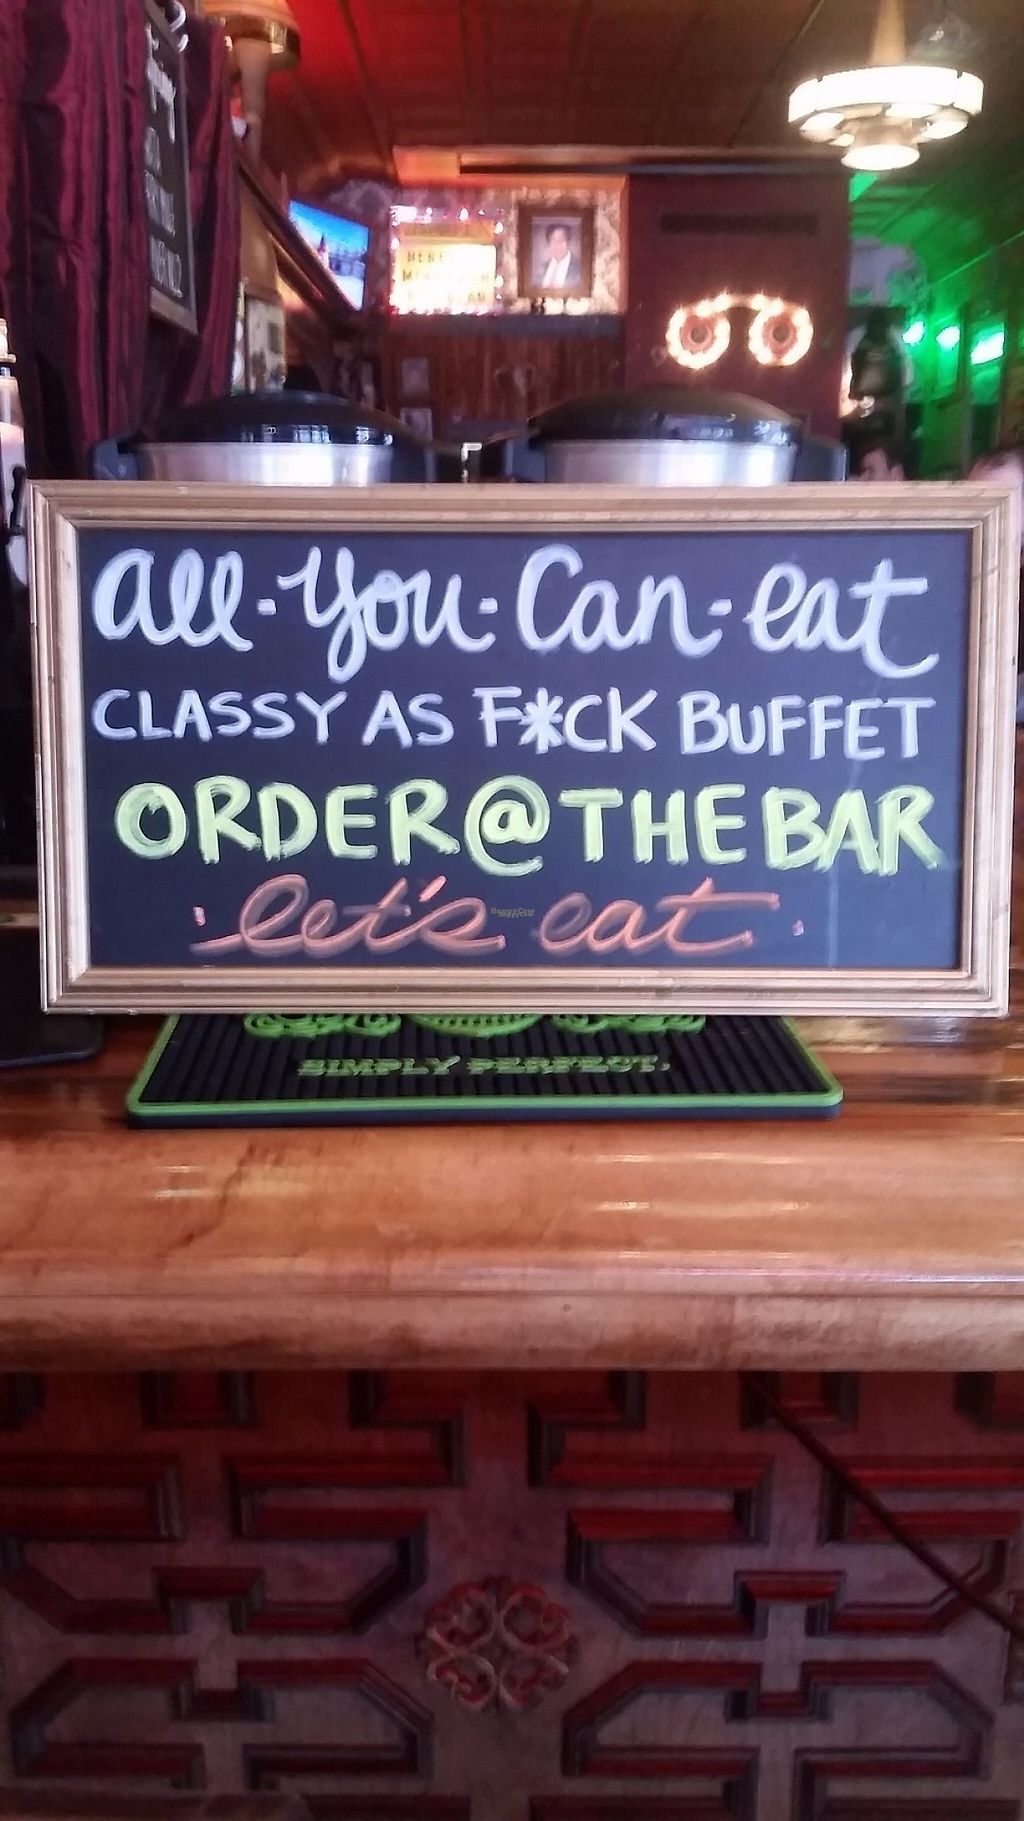 all-you-can-eat
CLASSY AS F*CK BUFFET
ORDER @ THE BAR
let's eat
HappyCow
SIMPLY PERFECT.